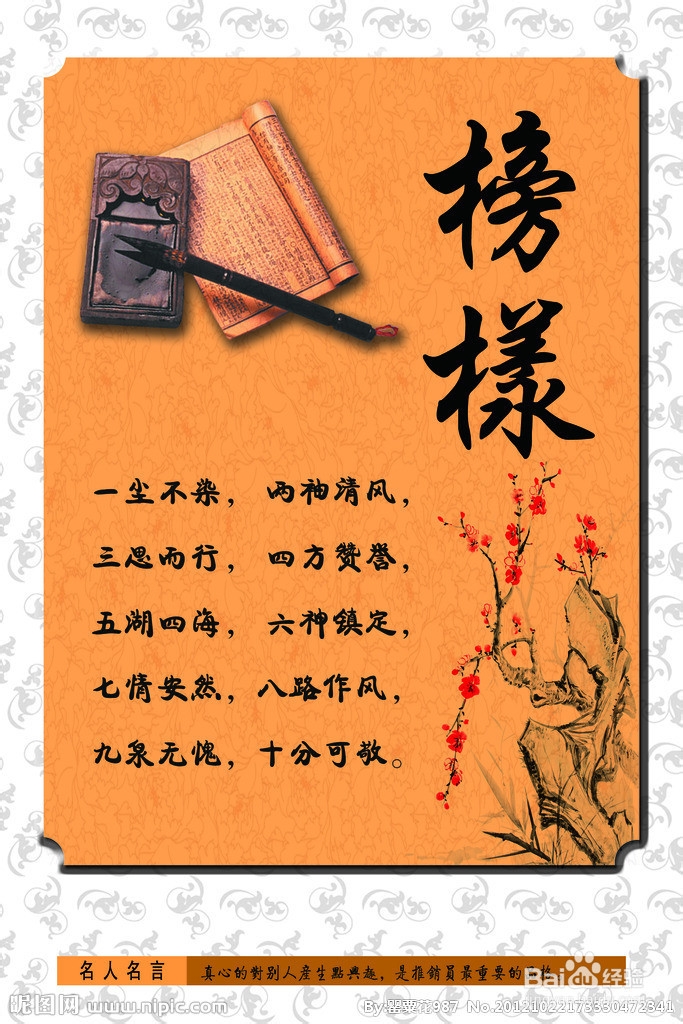 榜
樣
一尘不染， 两袖清风，
三思而行， 四方赞誉，
五湖四海， 六神镇定，
七情安然，八路作风，
九泉无愧，十分可敬。
名人名言
真心的對别人産生點興趣，是推銷員最重要的
Baidu经验
昵图网 www.nipic.com
By:罂粟花987 No.20121022173330472341